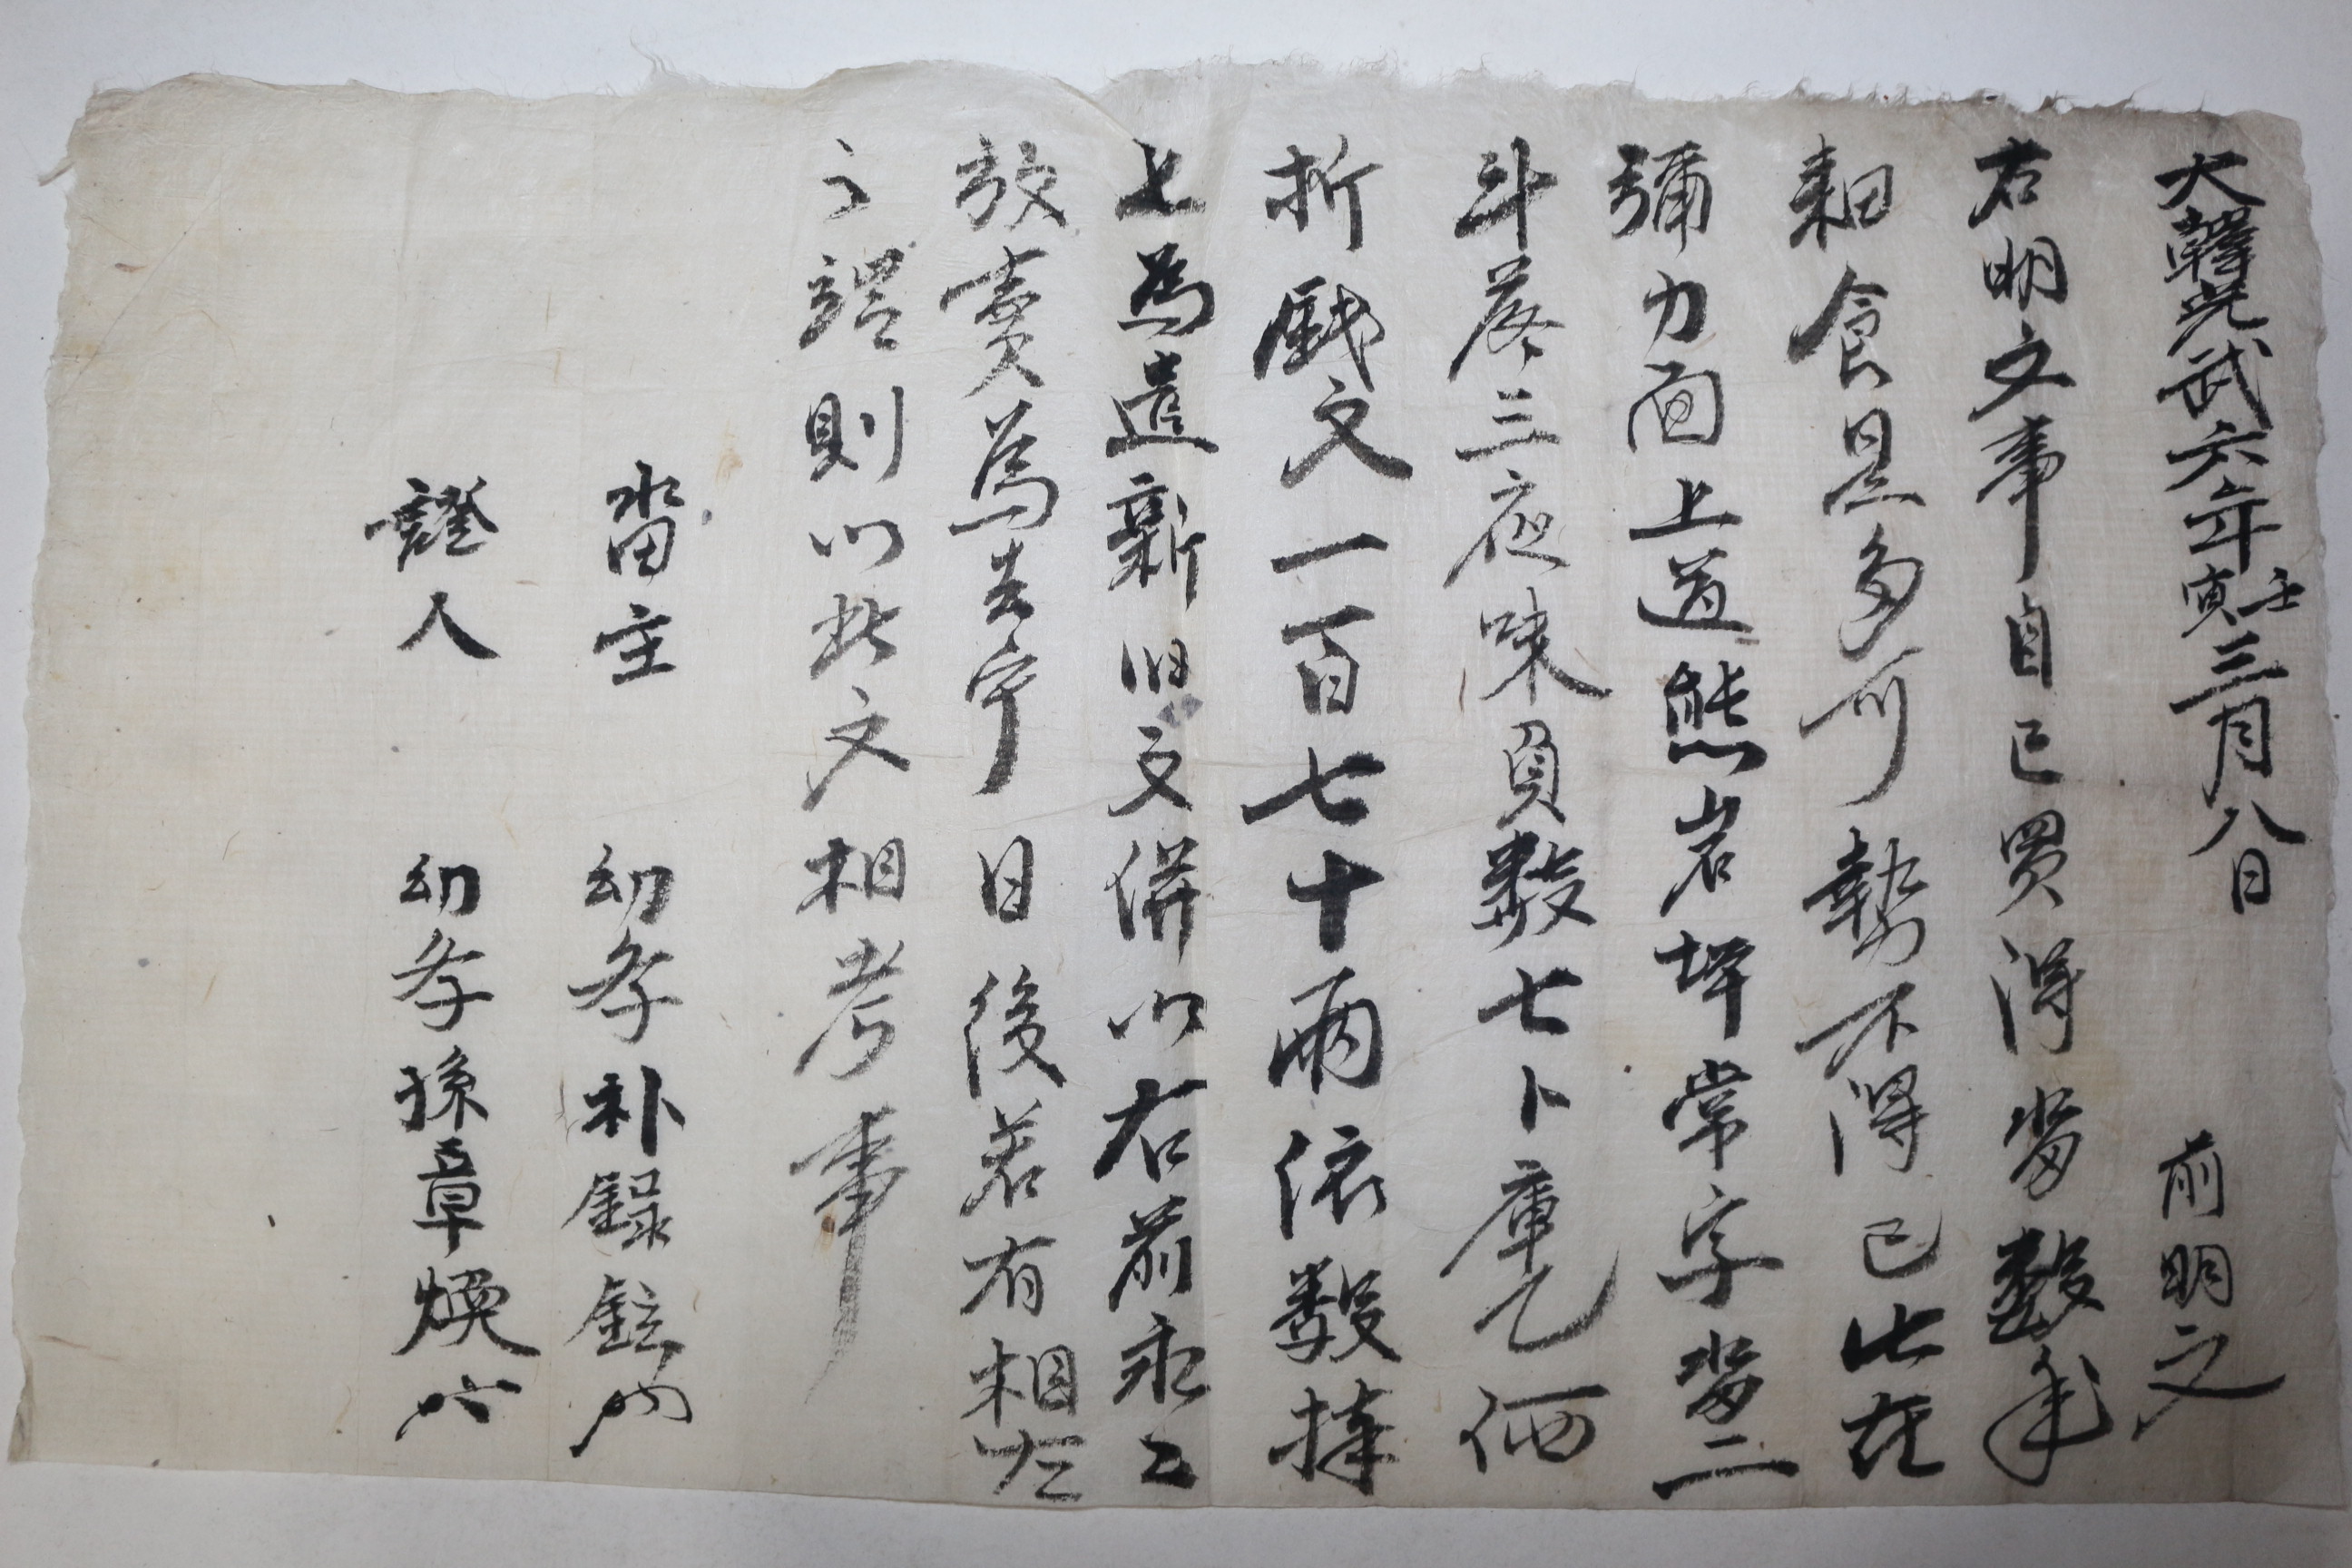 大韓光武六年壬寅三月八日 前明文
右明文事自己買得畓數年
耕食是多可勢不得已此在
彌力面上道熊岩坪常字畓二
斗落三夜味負数七卜庫乙価
折錢文一百七十兩依数捧
上為遣新旧文倂以右前永永
放賣為去乎日後若有相左
之端則以此文相考事
畓主 幼學朴錄鉉
證人 幼學孫章煥